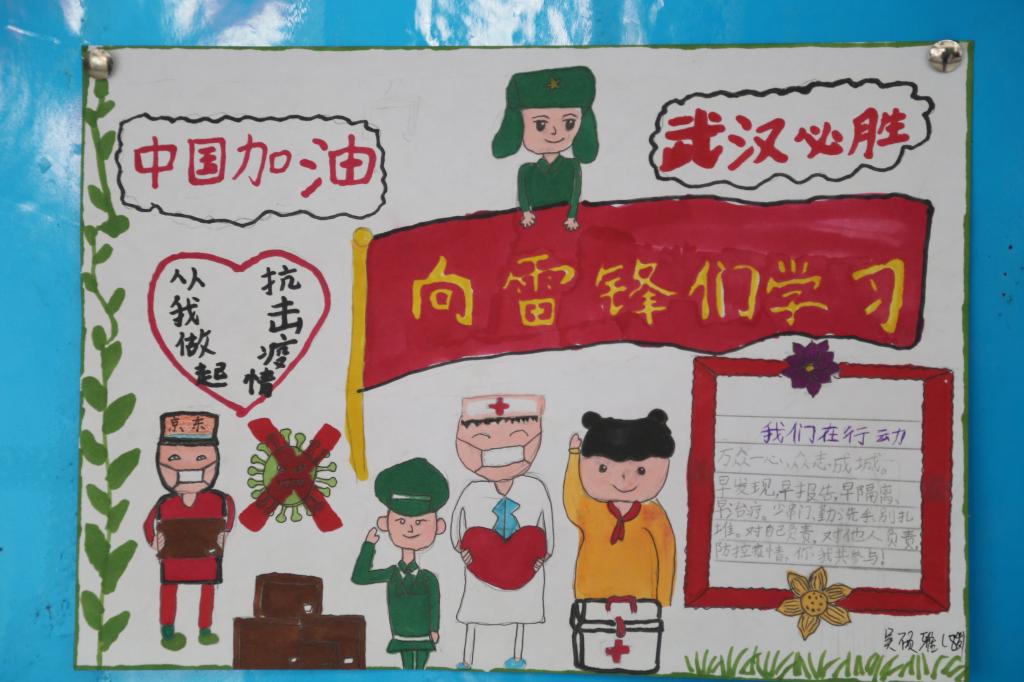 中国加油
武汉必胜
向雷锋们学习
抗击疫情
从我做起
京东
我们在行动
万众一心,众志成城。
早发现,早报告,早隔离,
早治疗。少串门,勤洗手,别扎
堆。对自己负责,对他人负责,
防控疫情,你我共参与!
吴硕雅